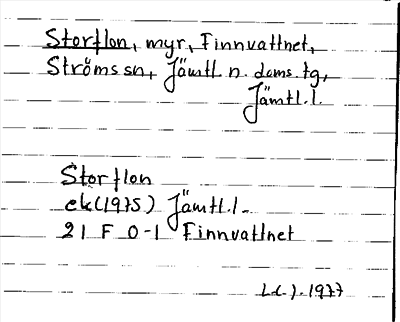 Storflon, myr, Finnvattnet,
Ströms sn, Jämtl. n. doms. tg,
Jämtl. l.
Storflon
ek (1975) Jämtl. l.
21 F 0-1 Finnvattnet
1977